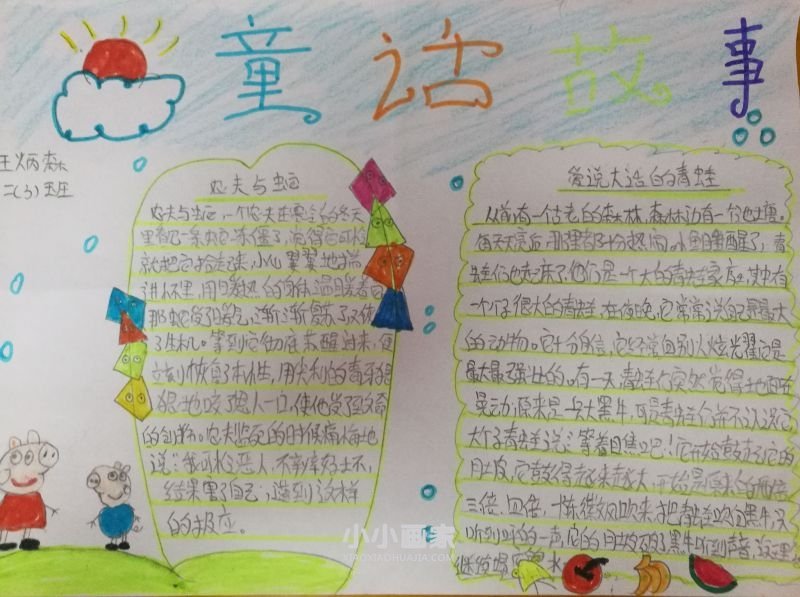 童话故事
王炳森
二(3)班
农夫与蛇
农夫与蛇,一个农夫在寒冷的冬天
里看见一条蛇冻僵了,觉得它可怜
就把它拾起来,小心翼翼地揣
进怀里,用暖热的身体温暖着它
那蛇受了暖气,渐渐复苏了,又恢复
了生机。等到它彻底苏醒过来,便
立刻恢复了本性,用尖利的毒牙狠
狠地咬了恩人一口,使他受了致命
的创伤。农夫临死的时候痛悔地
说:我可怜恶人,不辨好坏,
结果害了自己,遭到这样
的报应。
爱说大话的青蛙
从前有一个古老的森林,森林边有一个池塘。
每天天亮后,那里都十分热闹,
个子很大的青蛙,在夜晚,它常常说自己是最大
的动物。它十分自信,它经常向别人炫耀说自己是
最大最强壮的。有一天,青蛙们突然觉得地面在
晃动,原来是一头大黑牛,可是青蛙们并不认识它
大个子青蛙说:等着瞧吧!它开始鼓起它的
肚皮,它鼓得越来越大,开始是原来的两倍
三倍、四倍,一阵微风吹来,把青蛙吹向黑牛,只
听到呼的一声,它的肚皮破了,黑牛听到声音,
小小画家
XIAOXIAOHUAJIA.COM